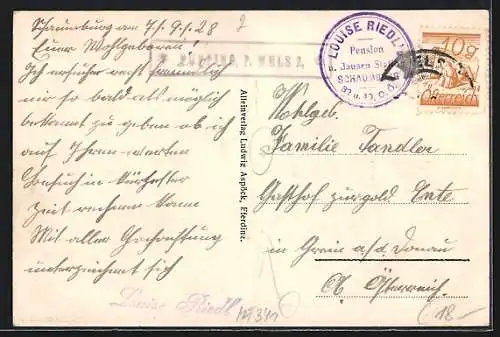 Schaumburg am 7/1. 9.1.28
Euer Wohlgeboren!
Ich ersuche recht freundlich
mir so bald als möglich
bekannt zu geben ob ich
auf Ihren werten
Besuch in nächster
Zeit rechnen kann
Mit aller Hochachtung
unterzeichnet sich
Louise Riedl
P. WELS
LOUISE RIEDL
Pension
Jausen
SCHAUMBURG
O.Ö.
10g
Österreich
Alleinverlag Ludwig Aspöck, Eferding.
Wohlgeb.
Familie Tandler
Gasthof zur gold. Ente
in Grein a/d. Donau
Ob. Österreich
18-